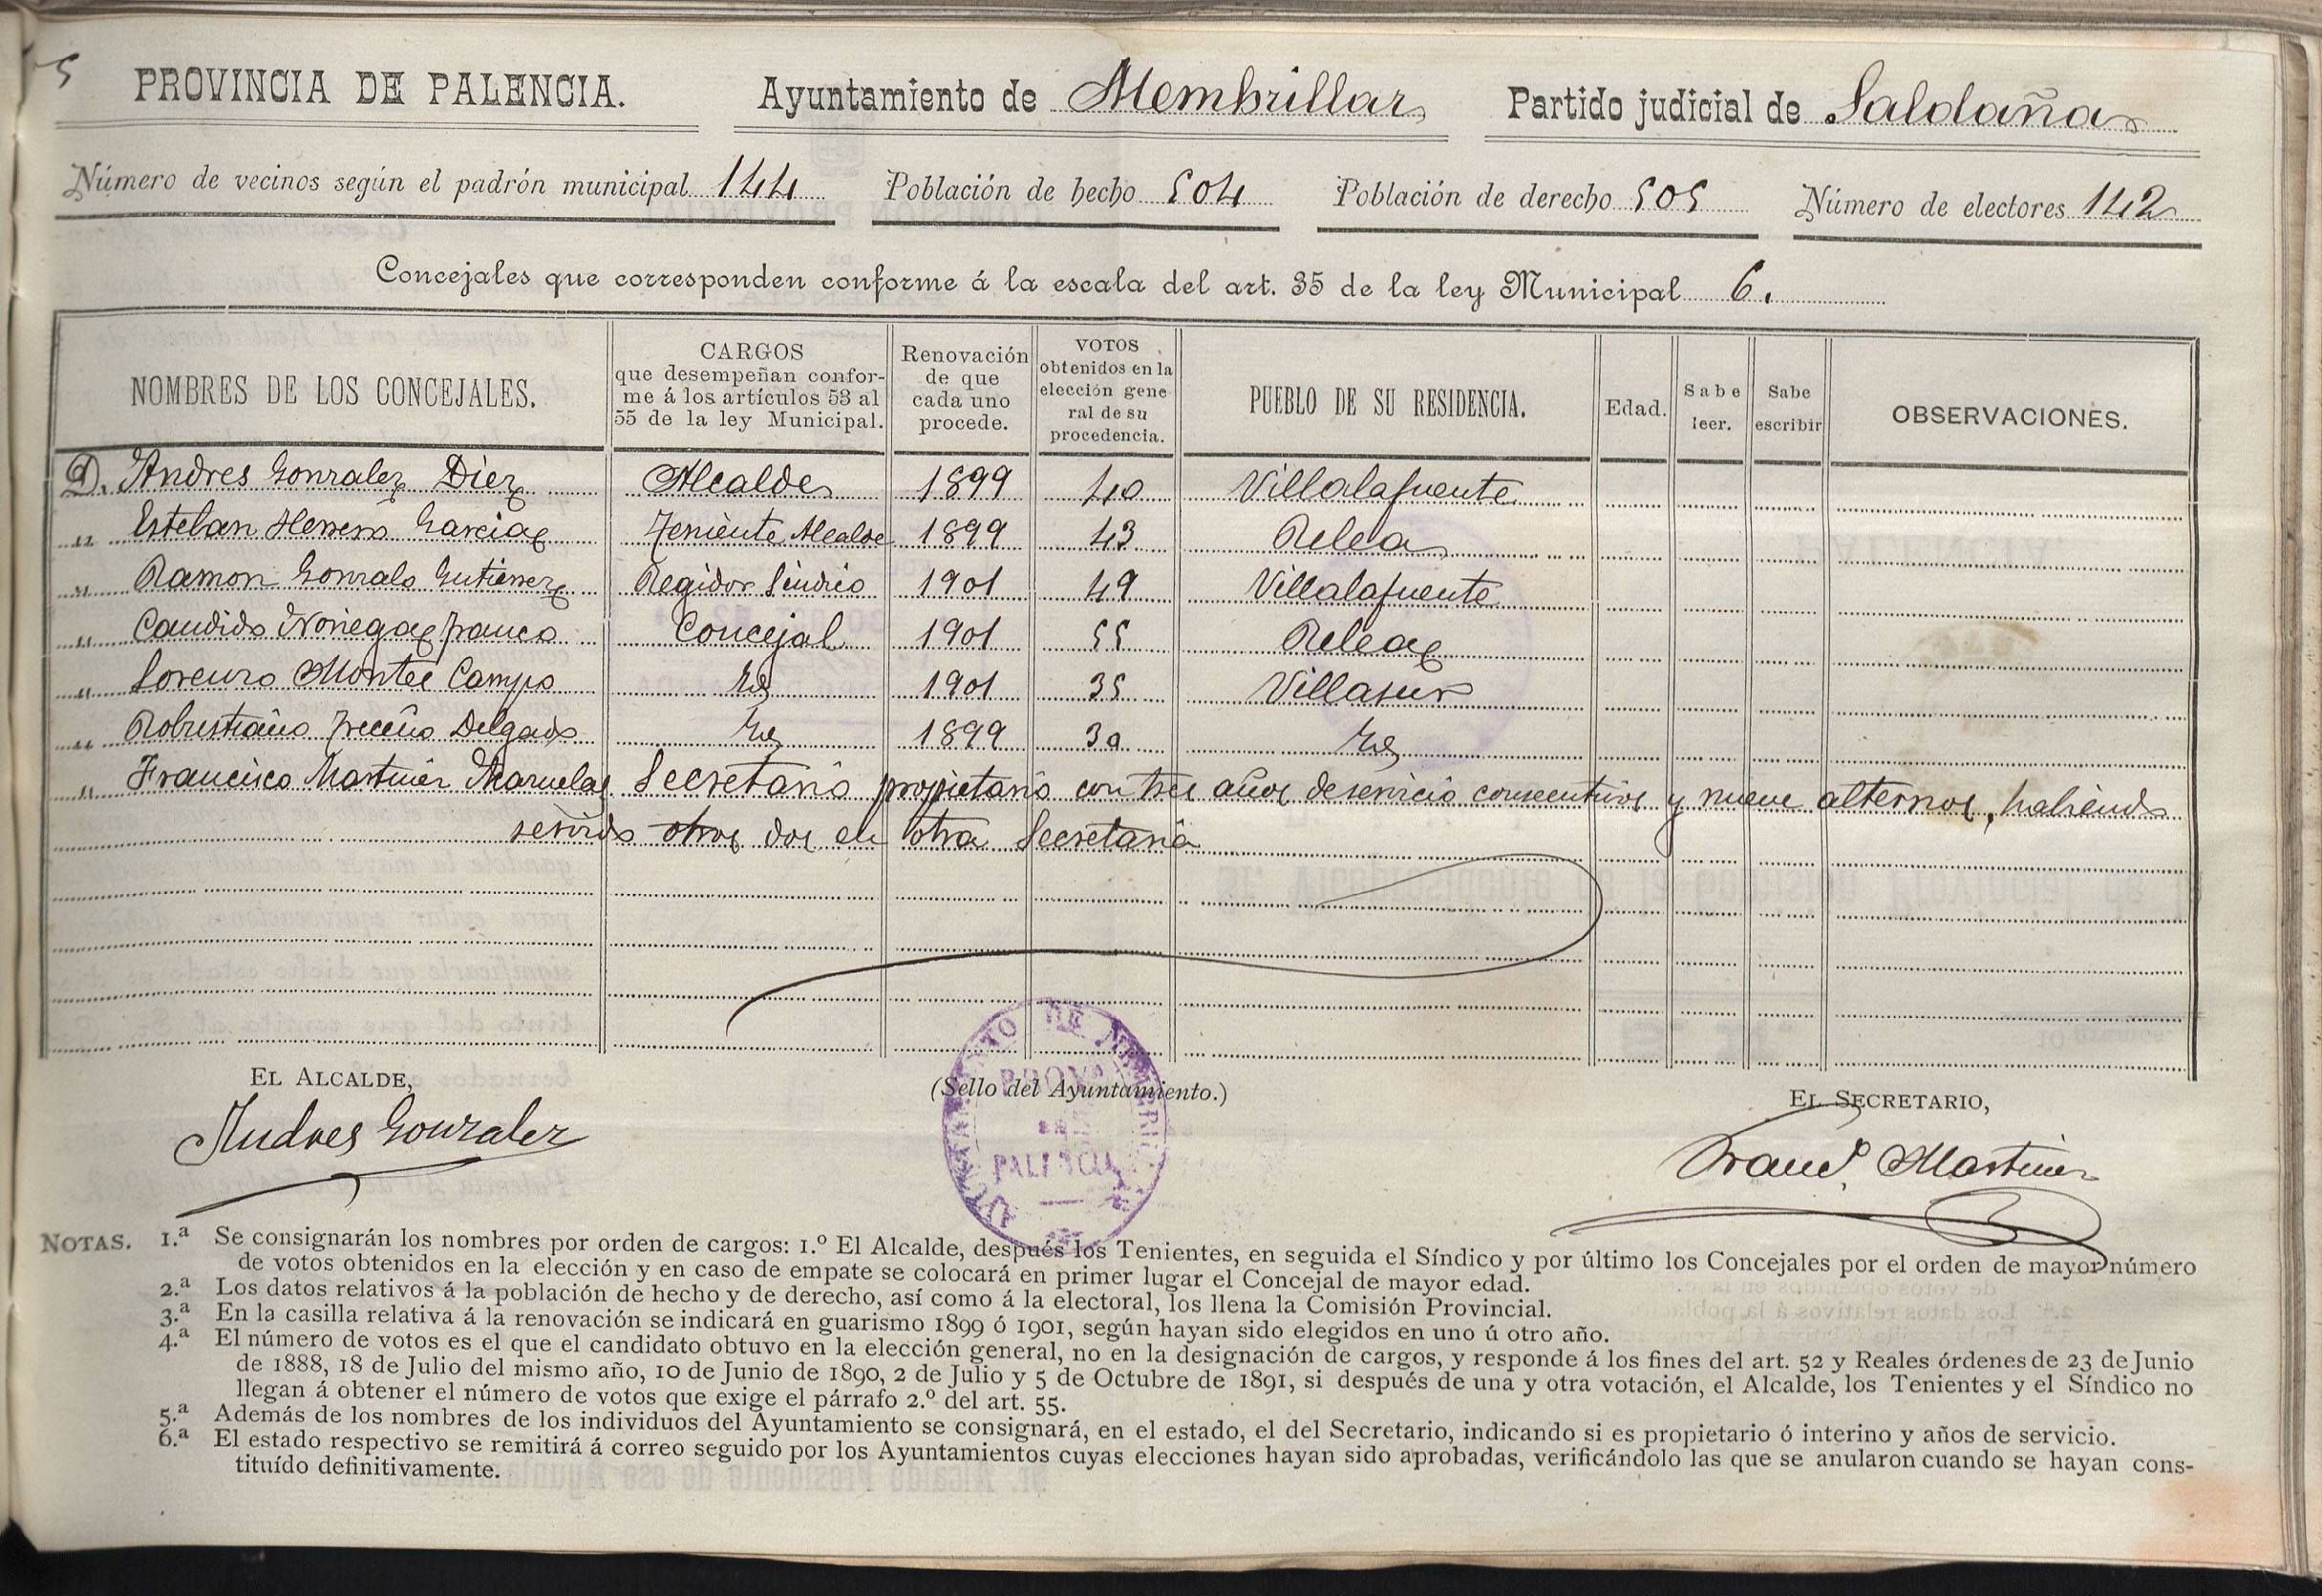 5
PROVINCIA DE PALENCIA. Ayuntamiento de Membrillar Partido judicial de Saldaña
Número de vecinos según el padrón municipal 144 Población de hecho 504 Población de derecho 505 Número de electores 142
Concejales que corresponden conforme á la escala del art. 35 de la ley Municipal 6.
NOMBRES DE LOS CONCEJALES. CARGOS que desempeñan confor- me á los artículos 53 al 55 de la ley Municipal. Renovación de que cada uno procede. VOTOS obtenidos en la elección gene ral de su procedencia. PUEBLO DE SU RESIDENCIA. Edad. Sabe leer. Sabe escribir OBSERVACIONES.
D. Andres Gonzalez Diez Alcalde 1899 40 Villalafuente
" Esteban Herrero Garcia Teniente Alcalde 1899 43 Relea
" Ramon Gonzalo Gutierrez Regidor Sindico 1901 49 Villalafuente
" Candido Noriega Franco Concejal 1901 55 Relea
" Lorenzo Montes Campo Id 1901 35 Villasur
" Robustiano Treceño Delgado Id 1899 30 Id
" Francisco Martinez Secretario propietario con tres años de servicio consecutivos y nueve alternos, habiendo
servido otros dos en otra Secretaria
EL ALCALDE, (Sello del Ayuntamiento.) EL SECRETARIO,
Andres Gonzalez
Franco. Martinez
AYUNTAMIENTO DE MEMBRILLAR
PROVª
DE
PALENCIA
NOTAS. 1.ª Se consignarán los nombres por orden de cargos: 1.º El Alcalde, después los Tenientes, en seguida el Síndico y por último los Concejales por el orden de mayor número
de votos obtenidos en la elección y en caso de empate se colocará en primer lugar el Concejal de mayor edad.
2.ª Los datos relativos á la población de hecho y de derecho, así como á la electoral, los llena la Comisión Provincial.
3.ª En la casilla relativa á la renovación se indicará en guarismo 1899 ó 1901, según hayan sido elegidos en uno ú otro año.
4.ª El número de votos es el que el candidato obtuvo en la elección general, no en la designación de cargos, y responde á los fines del art. 52 y Reales órdenes de 23 de Junio
de 1888, 18 de Julio del mismo año, 10 de Junio de 1890, 2 de Julio y 5 de Octubre de 1891, si después de una y otra votación, el Alcalde, los Tenientes y el Síndico no
llegan á obtener el número de votos que exige el párrafo 2.º del art. 55.
5.ª Además de los nombres de los individuos del Ayuntamiento se consignará, en el estado, el del Secretario, indicando si es propietario ó interino y años de servicio.
6.ª El estado respectivo se remitirá á correo seguido por los Ayuntamientos cuyas elecciones hayan sido aprobadas, verificándolo las que se anularon cuando se hayan cons-
tituído definitivamente.